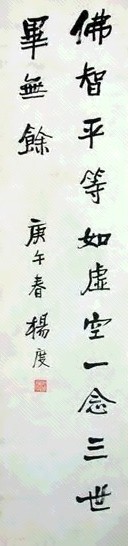 佛智平等如虛空一念三世
畢無餘
庚午春楊度